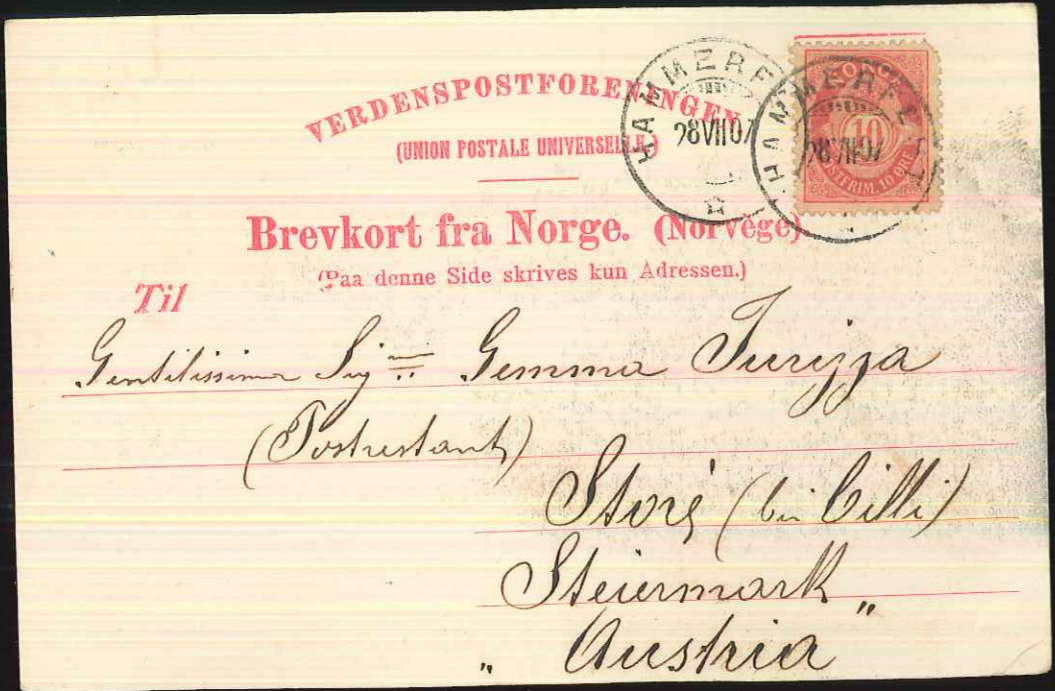 VERDENSPOSTFORENINGEN
(UNION POSTALE UNIVERSELLE.)
HAMMERF
28 VII 07
HAMMERFEST
28 VII 07
NORGE
10
POSTFRIM. 10 ØRE
Brevkort fra Norge. (Norvège)
(Paa denne Side skrives kun Adressen.)
Til
Gentilissima Sig.na Gemma Turizza
(Postrestant)
Storé (bei Cilli)
Steiermark „
„ Austria